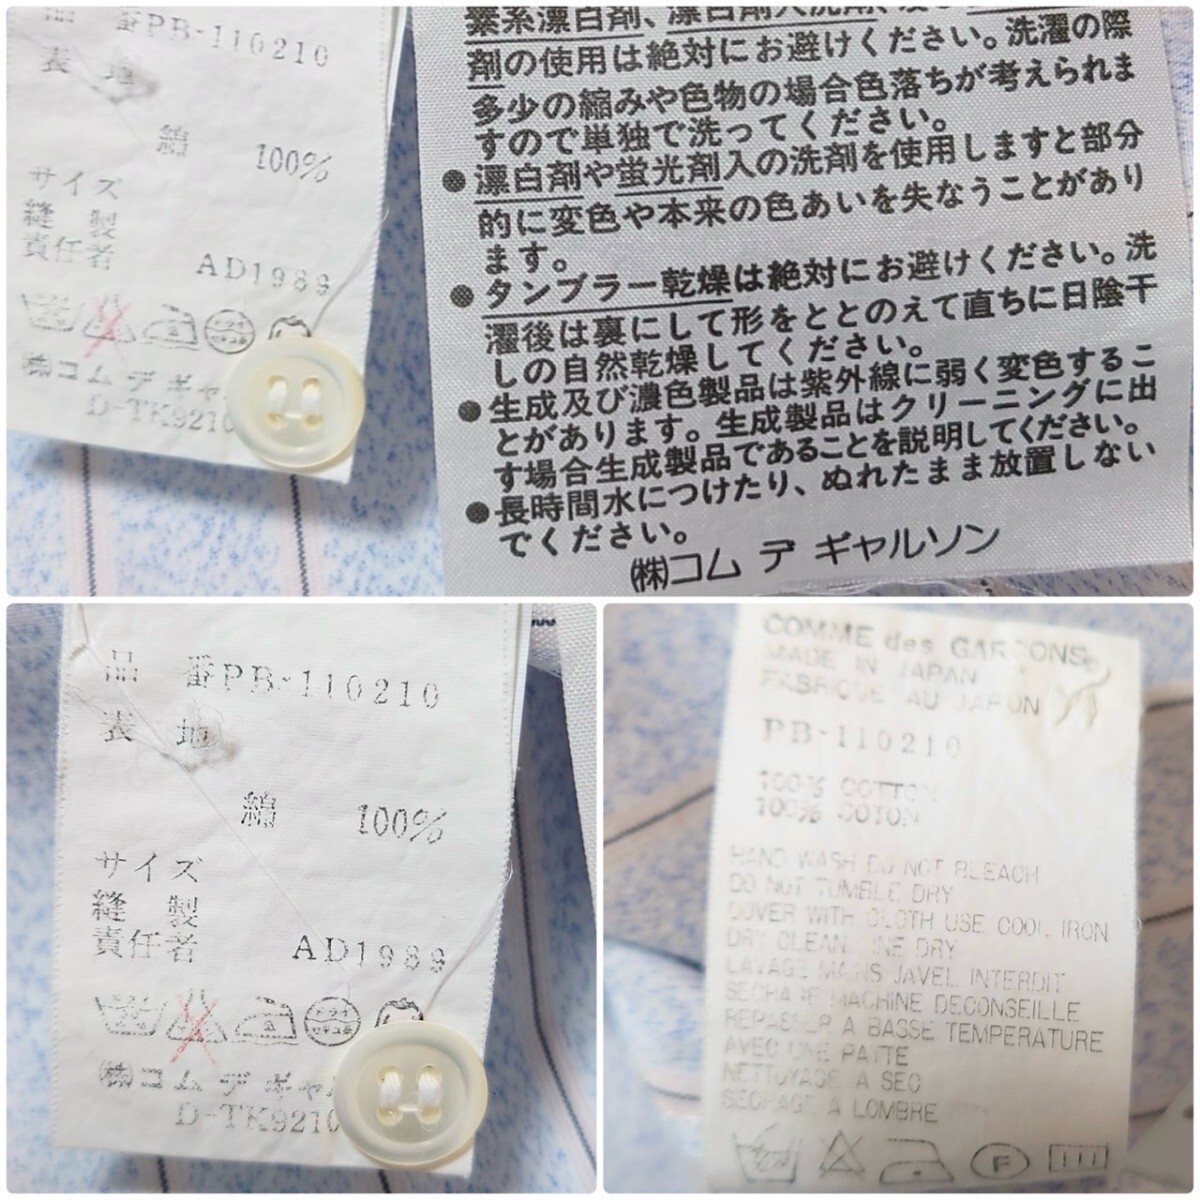 番PB-110210
表 地
綿 100%
サイズ
縫 製
責任者 AD1989
㈱コム デ ギャ
D-TK9210
素系漂白剤、漂白剤入洗剤、
剤の使用は絶対にお避けください。洗濯の際
多少の縮みや色物の場合色落ちが考えられま
すので単独で洗ってください。
●漂白剤や蛍光剤入の洗剤を使用しますと部分
的に変色や本来の色あいを失なうことがあり
ます。
●タンブラー乾燥は絶対にお避けください。洗
濯後は裏にして形をととのえて直ちに日陰干
しの自然乾燥してください。
●生成及び濃色製品は紫外線に弱く変色するこ
とがあります。生成製品はクリーニングに出
す場合生成製品であることを説明してください。
●長時間水につけたり、ぬれたまま放置しない
でください。
㈱コム デ ギャルソン
品 番PB-110210
表 地
綿 100%
サイズ
縫 製
責任者 AD1989
㈱コム デ ギャ
D-TK9210
COMME des GARÇONS
MADE IN JAPAN
FABRIQUE AU JAPON
PB-110210
100% COTTON
100% COTON
HAND WASH DO NOT BLEACH
DO NOT TUMBLE DRY
COVER WITH CLOTH USE COOL IRON
DRY CLEAN LINE DRY
LAVAGE MAINS JAVEL INTERDIT
SECHAGE MACHINE DECONSEILLE
REPASSER A BASSE TEMPERATURE
AVEC UNE PATTE
NETTOYAGE A SEC
SECHAGE A LOMBRE
F